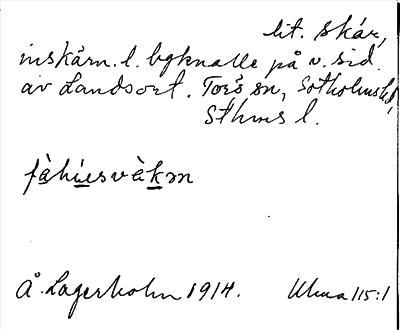 lit. skär,
inskärn. l. bgknalle på v. sid.
av Landsort. Torö sn, Sotholms hd,
Sthms l.
fàhùesvàkm
Å. Lagerholm 1914. Uhma 115:1